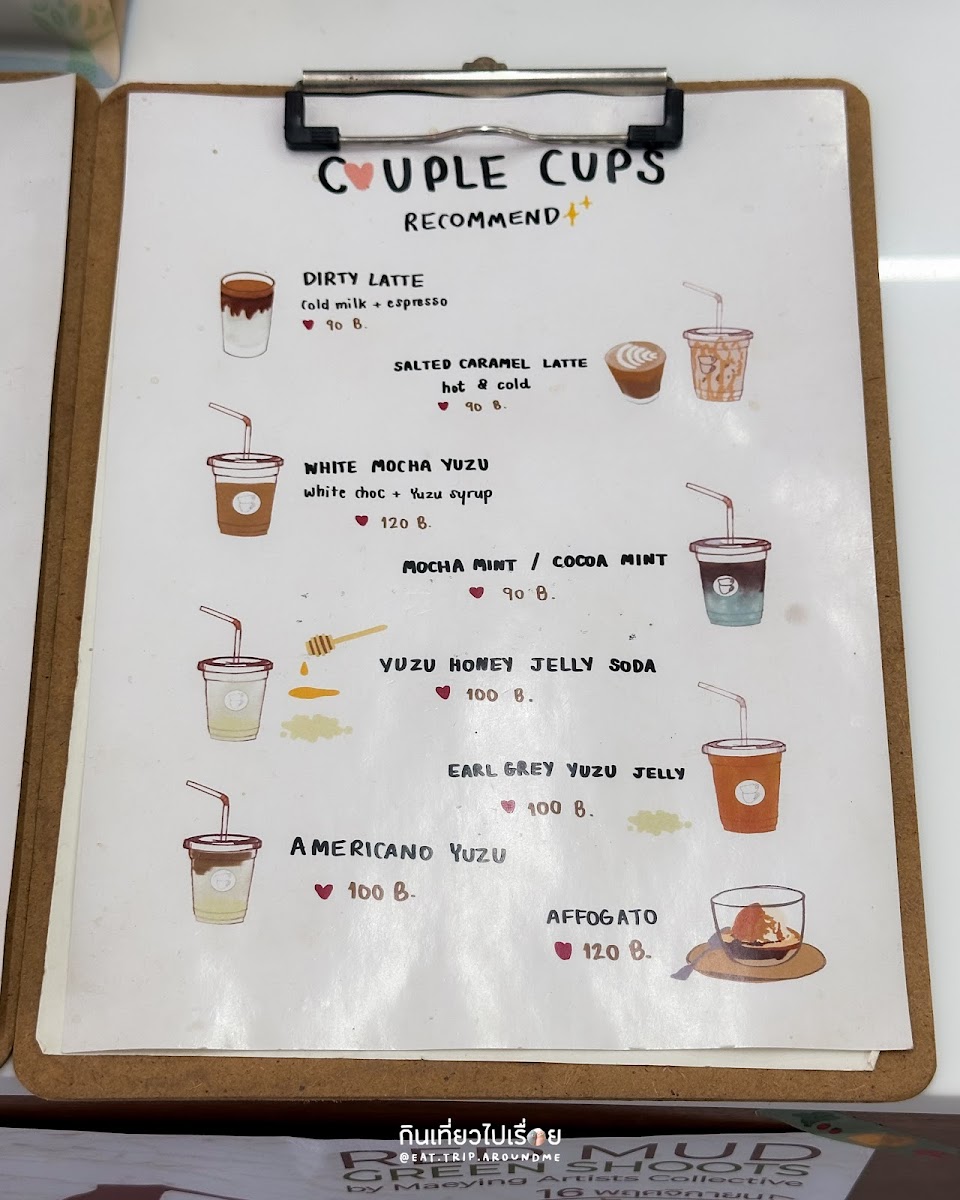 COUPLE CUPS
RECOMMEND
DIRTY LATTE
Cold milk + espresso
90 B.
SALTED CARAMEL LATTE
hot & cold
90 B.
WHITE MOCHA YUZU
white choc + Yuzu syrup
120 B.
MOCHA MINT / COCOA MINT
90 B.
YUZU HONEY JELLY SODA
100 B.
EARL GREY YUZU JELLY
100 B.
AMERICANO YUZU
100 B.
AFFOGATO
120 B.
กินเที่ยวไปเรื่อย
@EAT.TRIP.AROUNDME
MUD
GREEN SHOOTS
by Maeying Artists Collective
16 พฤศจิกายน